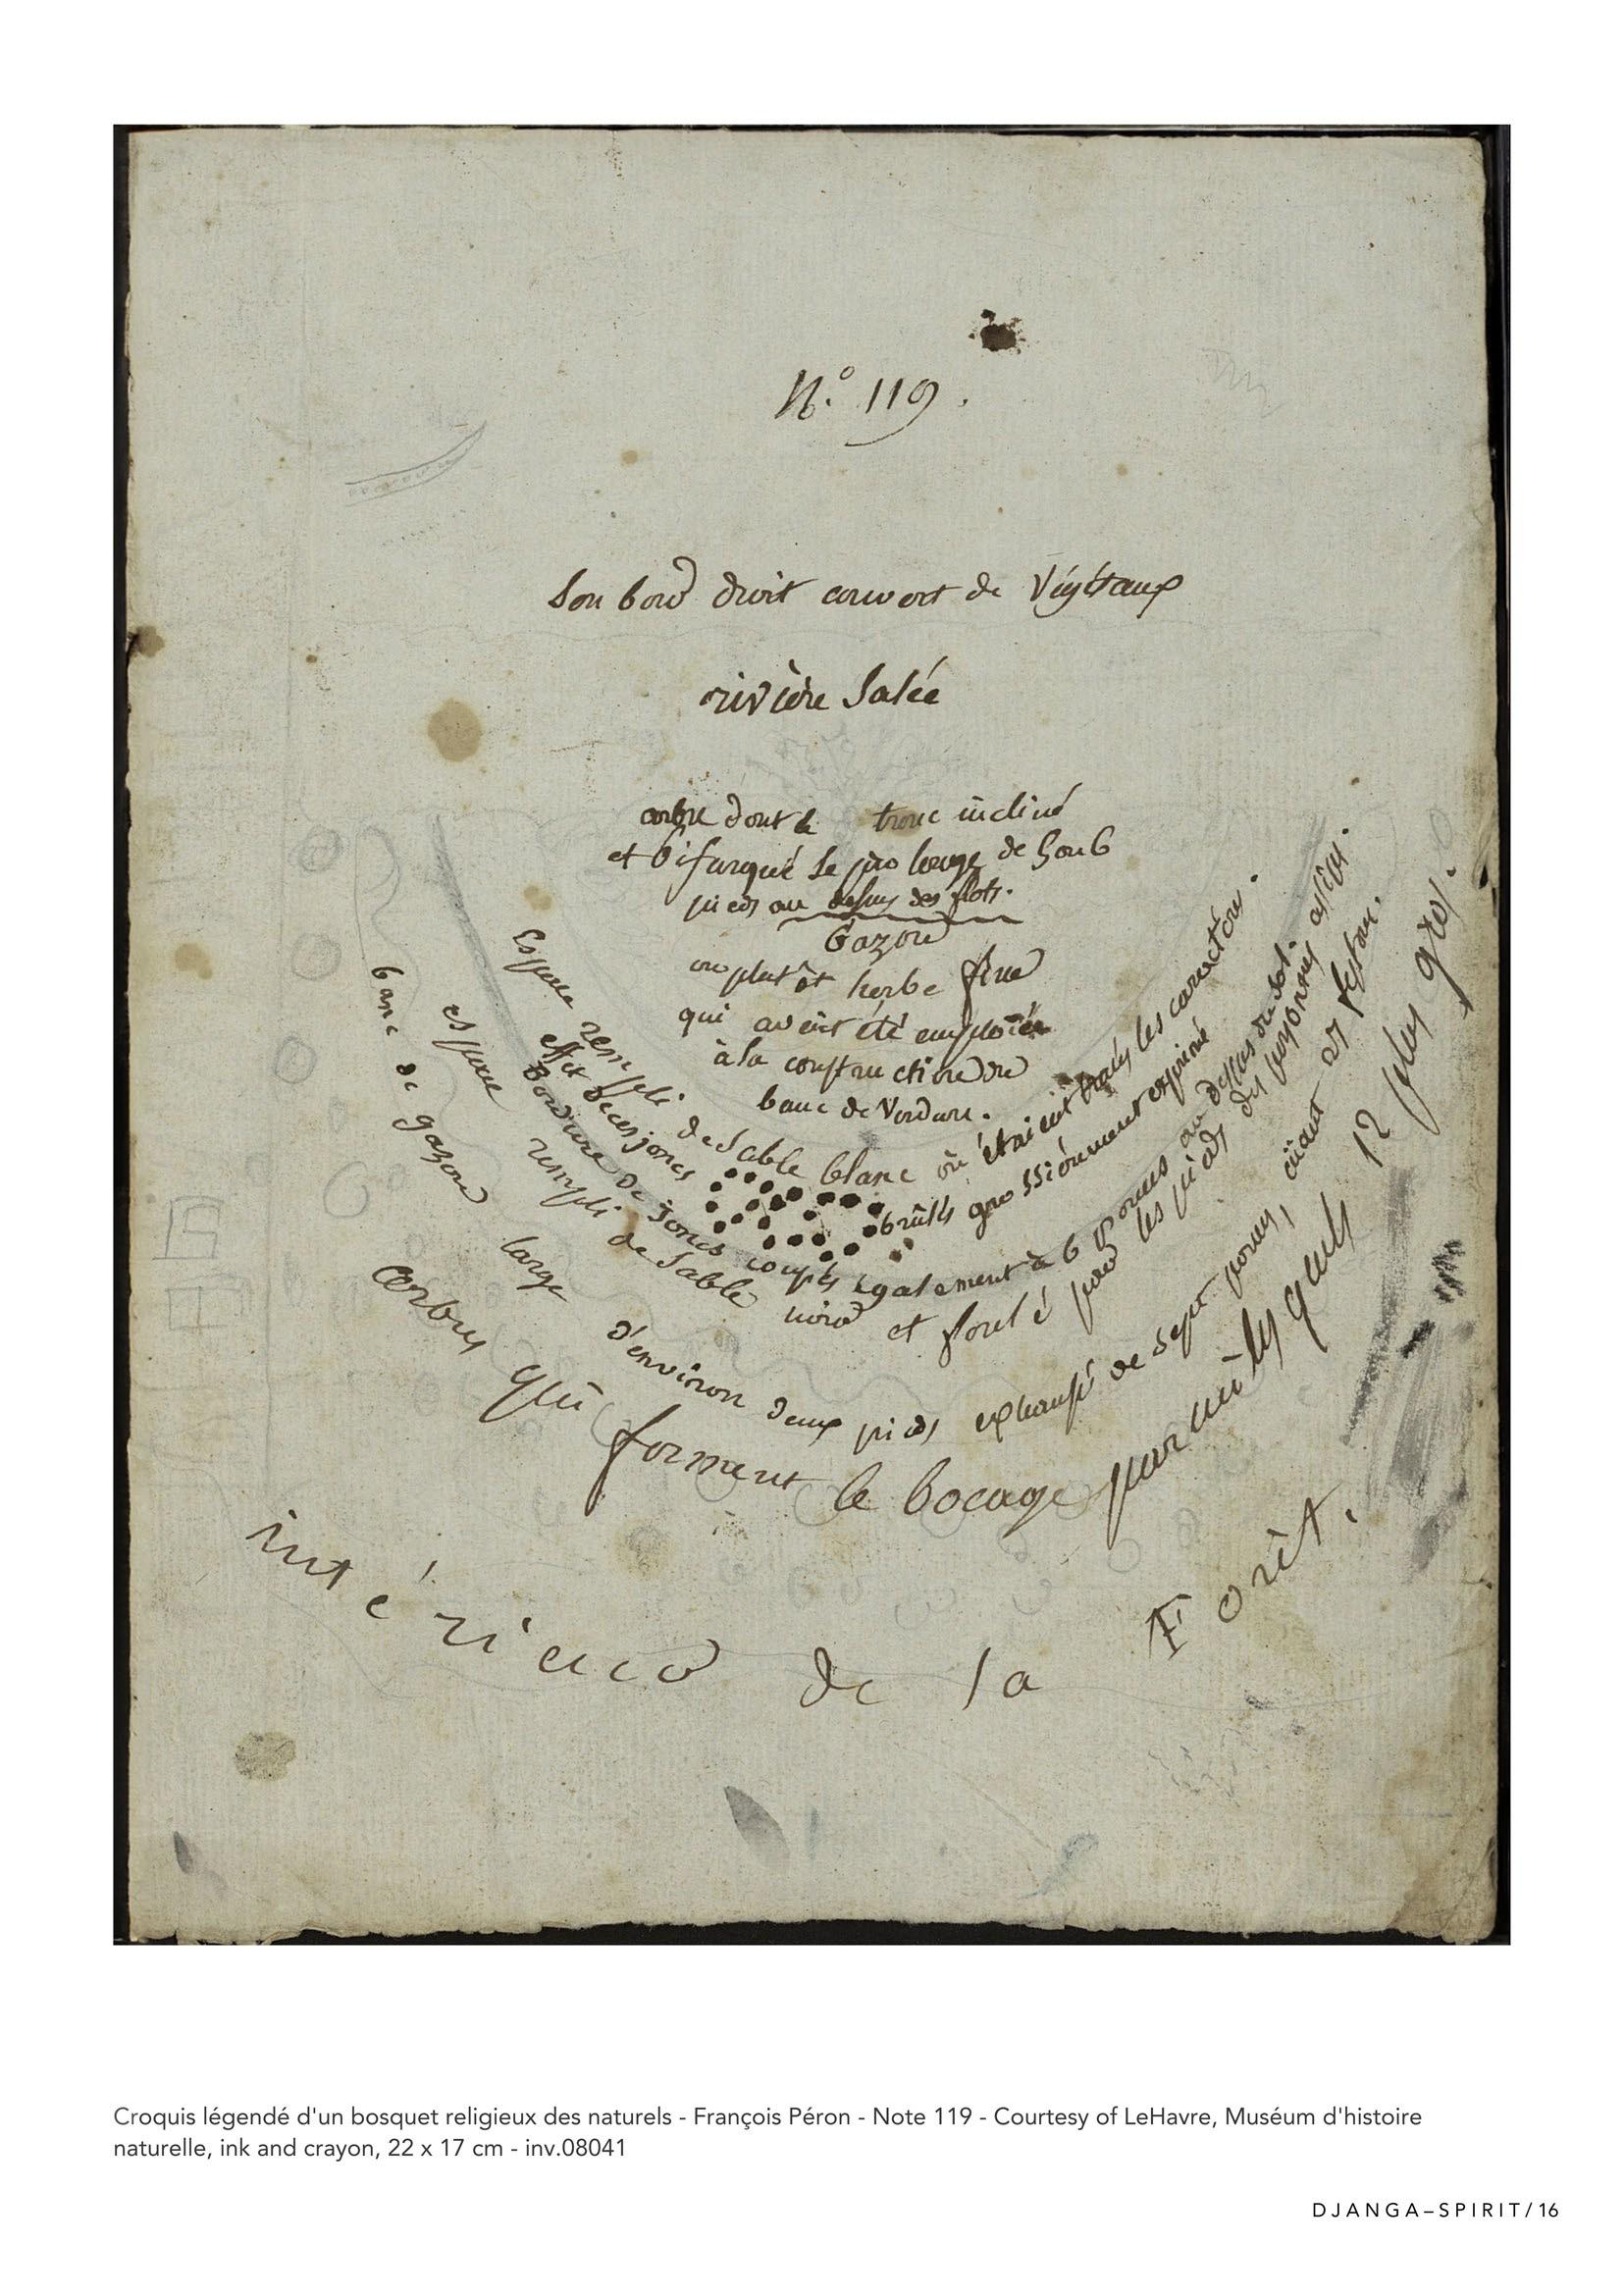 N.º 119.
Son bord droit couvert de Végétaux
rivière Salée
arbre dont le tronc incliné
et bifurqué se prolonge de 5 ou 6
pieds au dessus des flots.
Gazon
ou plutôt herbe fine
qui avoit été emploiée
à la construction du
banc de Verdure.
Espace rempli de Sable blanc où étaient tracés les caractères.
effet de ces joncs brûlés grossièrement exprimé
Bordure de joncs coupés également à 6 pouces au dessus du sol.
espace rempli de Sable noir et foulé par les pieds des personnes assises.
banc de gazon large d'environ deux pieds exhaussé de sept pouces,
arbres qui forment le bocage parmi lesquels 12 plus gros.
intérieur de la Forêt.
Croquis légendé d'un bosquet religieux des naturels - François Péron - Note 119 - Courtesy of LeHavre, Muséum d'histoire
naturelle, ink and crayon, 22 x 17 cm - inv.08041
DJANGA–SPIRIT/ 16